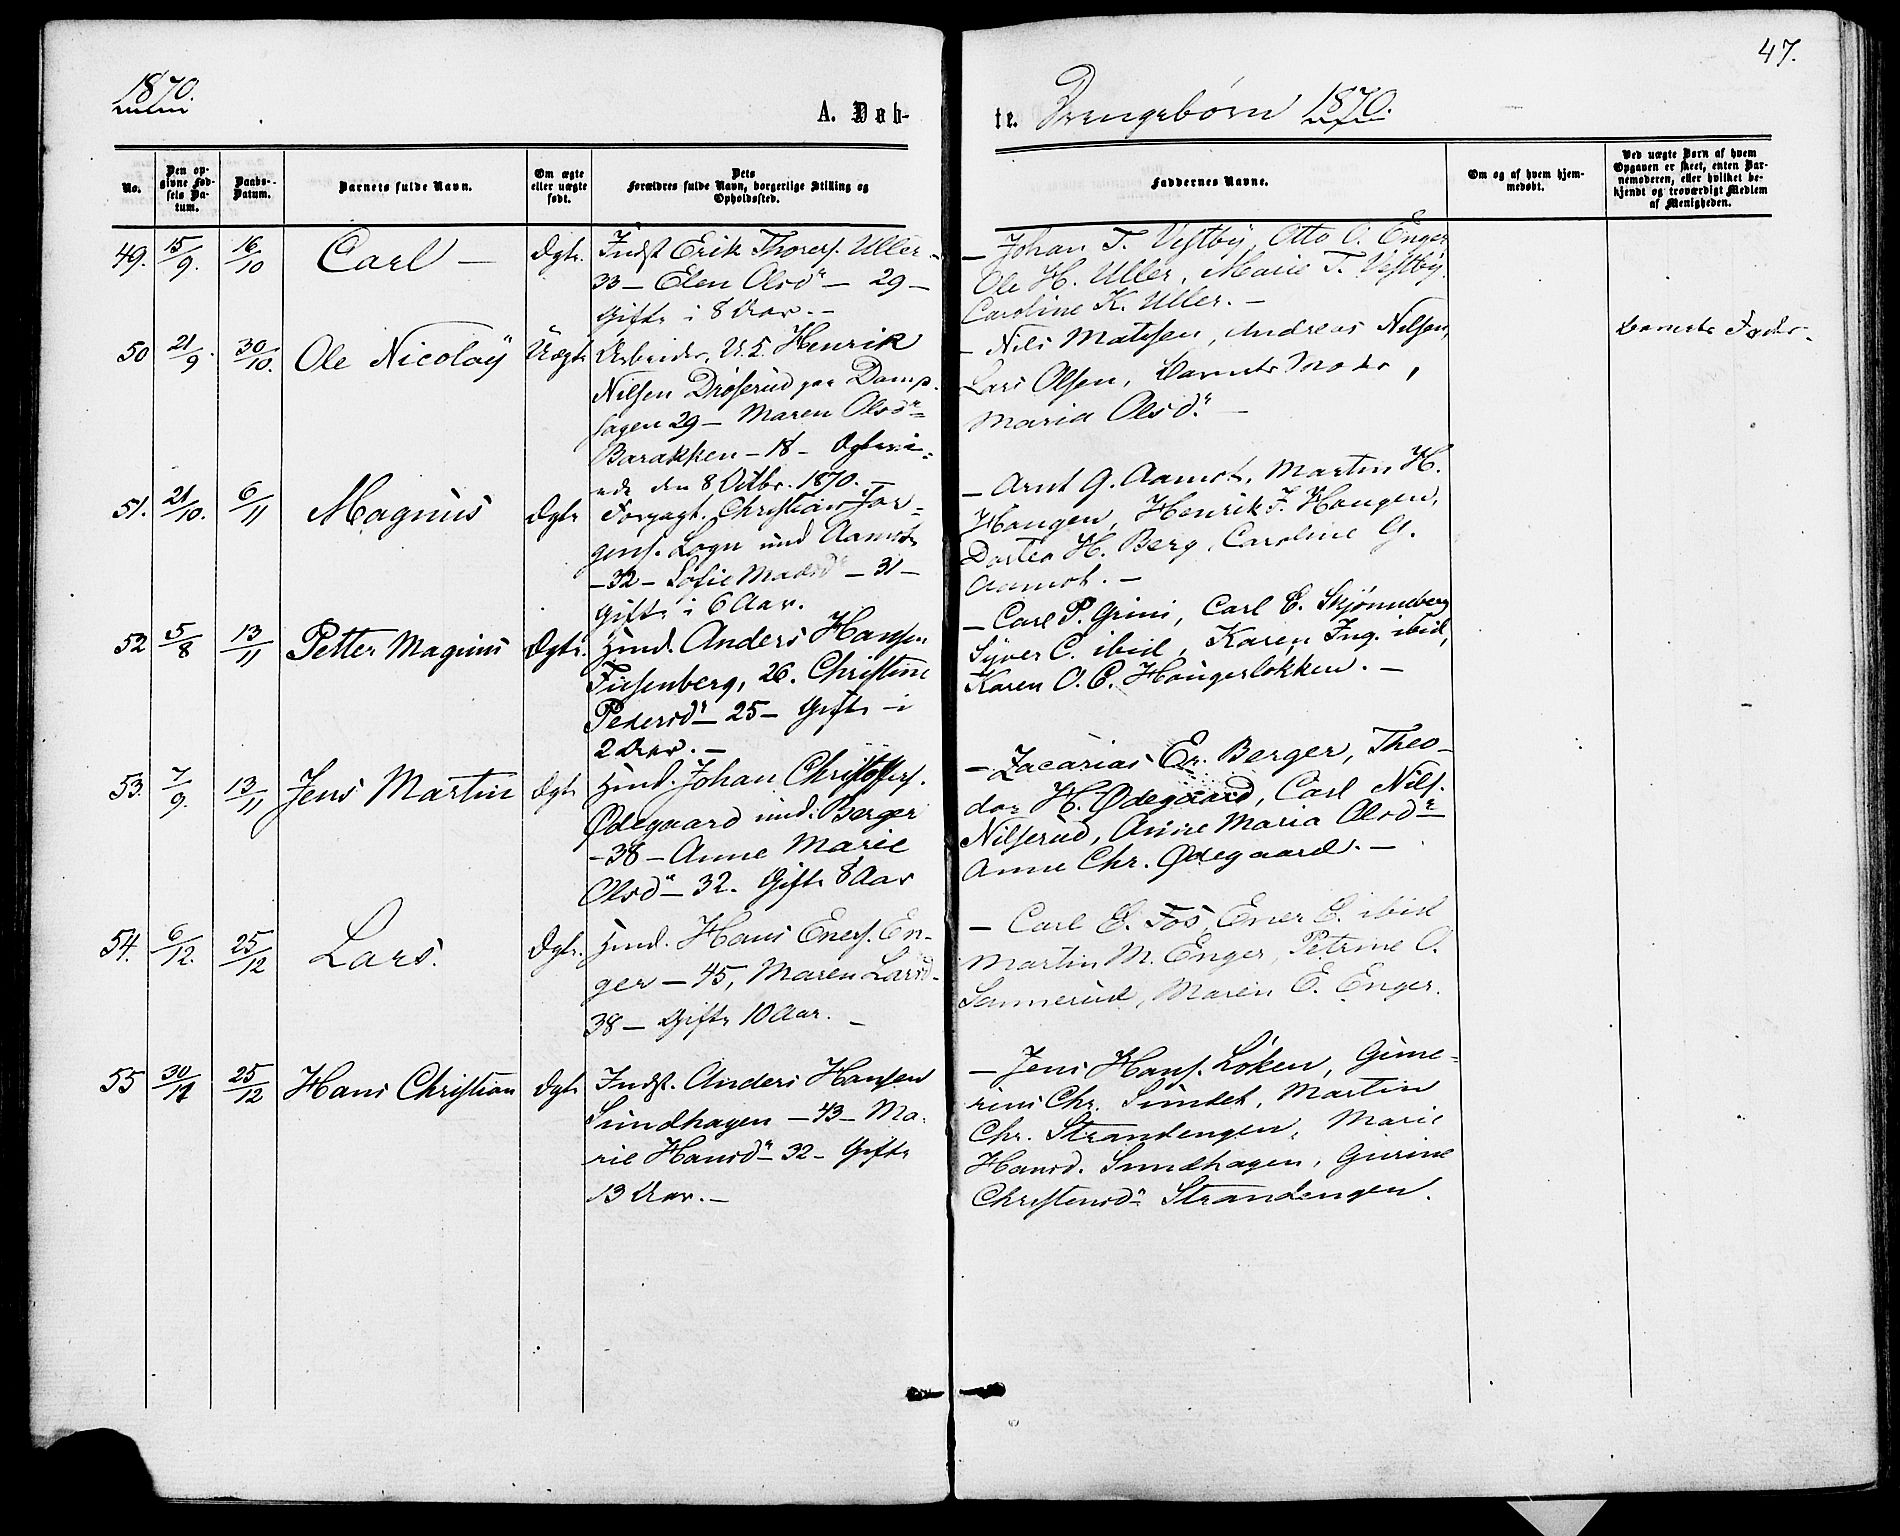 47.
1870.
A. Døb-
te. Drengebørn 1870.
No.
Den op-
givne Fød-
sels Da-
tum.
Daabs-
Datum.
Barnets fulde Navn.
Om ægte
eller uægte
født.
Dets
Forældres fulde Navn, borgerlige Stilling og
Opholdssted.
Faddernes Navne.
Om og af hvem hjem-
medøbt.
Ved uægte Børn af hvem
Opgaven er skeet, enten Bar-
nemoderen, eller hvilket be-
kjendt og troværdigt Medlem
af Menigheden.
49. 15/9. 16/10 Carl — Ægte. Indst Erik Thorers. Uller —
33 — Elen Olsdr — 29 —
Gifte i 8 Aar. —
— Johan T. Vestby, Otto O. Enger
Ole H. Uller, Marie T. Vestby.
Caroline K. Uller. —
50 21/9. 30/10. Ole Nicolaÿ Uægte Arbeider, U.K. Henrik
Nilsen Drøserud paa Damp-
sagen 29 — Maren Olsdr
Barakken — 18 — Ægtevie-
ede den 8 Octbr. 1870. —
— Nils Matssen, Andreas Nilsen,
Lars Olsen, Barnets Moder,
Maria Olsdr. —
Barnets Fader.
51. 21/10. 6/11 Magnus Ægte Forpagt. Christian Jør-
gens. Logn und Aamodt
— 32 — Sofie Madsdr — 31 —
Gifte i 6 Aar.
— Arnt G. Aamot, Martin H.
Haugen, Henrik F. Haugen,
Dortea H. Berg, Caroline G.
Aamot. —
52 5/8 13/11 Petter Magnus Ægte. Husd. Anders Hansen
Fusenberg, 26. Christine
Pedersdr — 25 — Gifte i
2 Aar. —
— Carl P. Grini, Carl E. Skjønneberg
Syver C. ibid, Karen Ing. ibid,
Karen O. P. Haugerløkken. —
53. 7/9. 13/11 Jens Martin Ægte Husd. Johan Christoffers.
Ødegaard und. Berger
— 38 — Anne Marie
Olsdr — 32. Gifte 8 Aar
— Zacarias Er. Berger, Theo-
dor H. Ødegaard, Carl Nils.
Nilserud, Anne Maria Olsdr
Anne Chr. Ødegaard. —
54. 6/12. 25/12 Lars. Ægte. Husd. Hans Eners. En-
ger — 45, Maren Larsd.
38 — Gifte 10 Aar. —
— Carl E. Fos, Ener E. ibid
Martin M. Enger, Petrine O.
Sannerud, Maren E. Enger.
55 30/11 25/12 Hans Christian Ægte Indst. Anders Hansen
Sundhagen — 43 — Ma-
rie Hansdr 32 — Gifte
13 Aar. —
— Jens Hans. Løken, Gune-
rius Chr. Sundet, Martin
Chr. Strandengen, Marie
Hansd. Sundhagen, Gurine
Christensdr Strandengen.